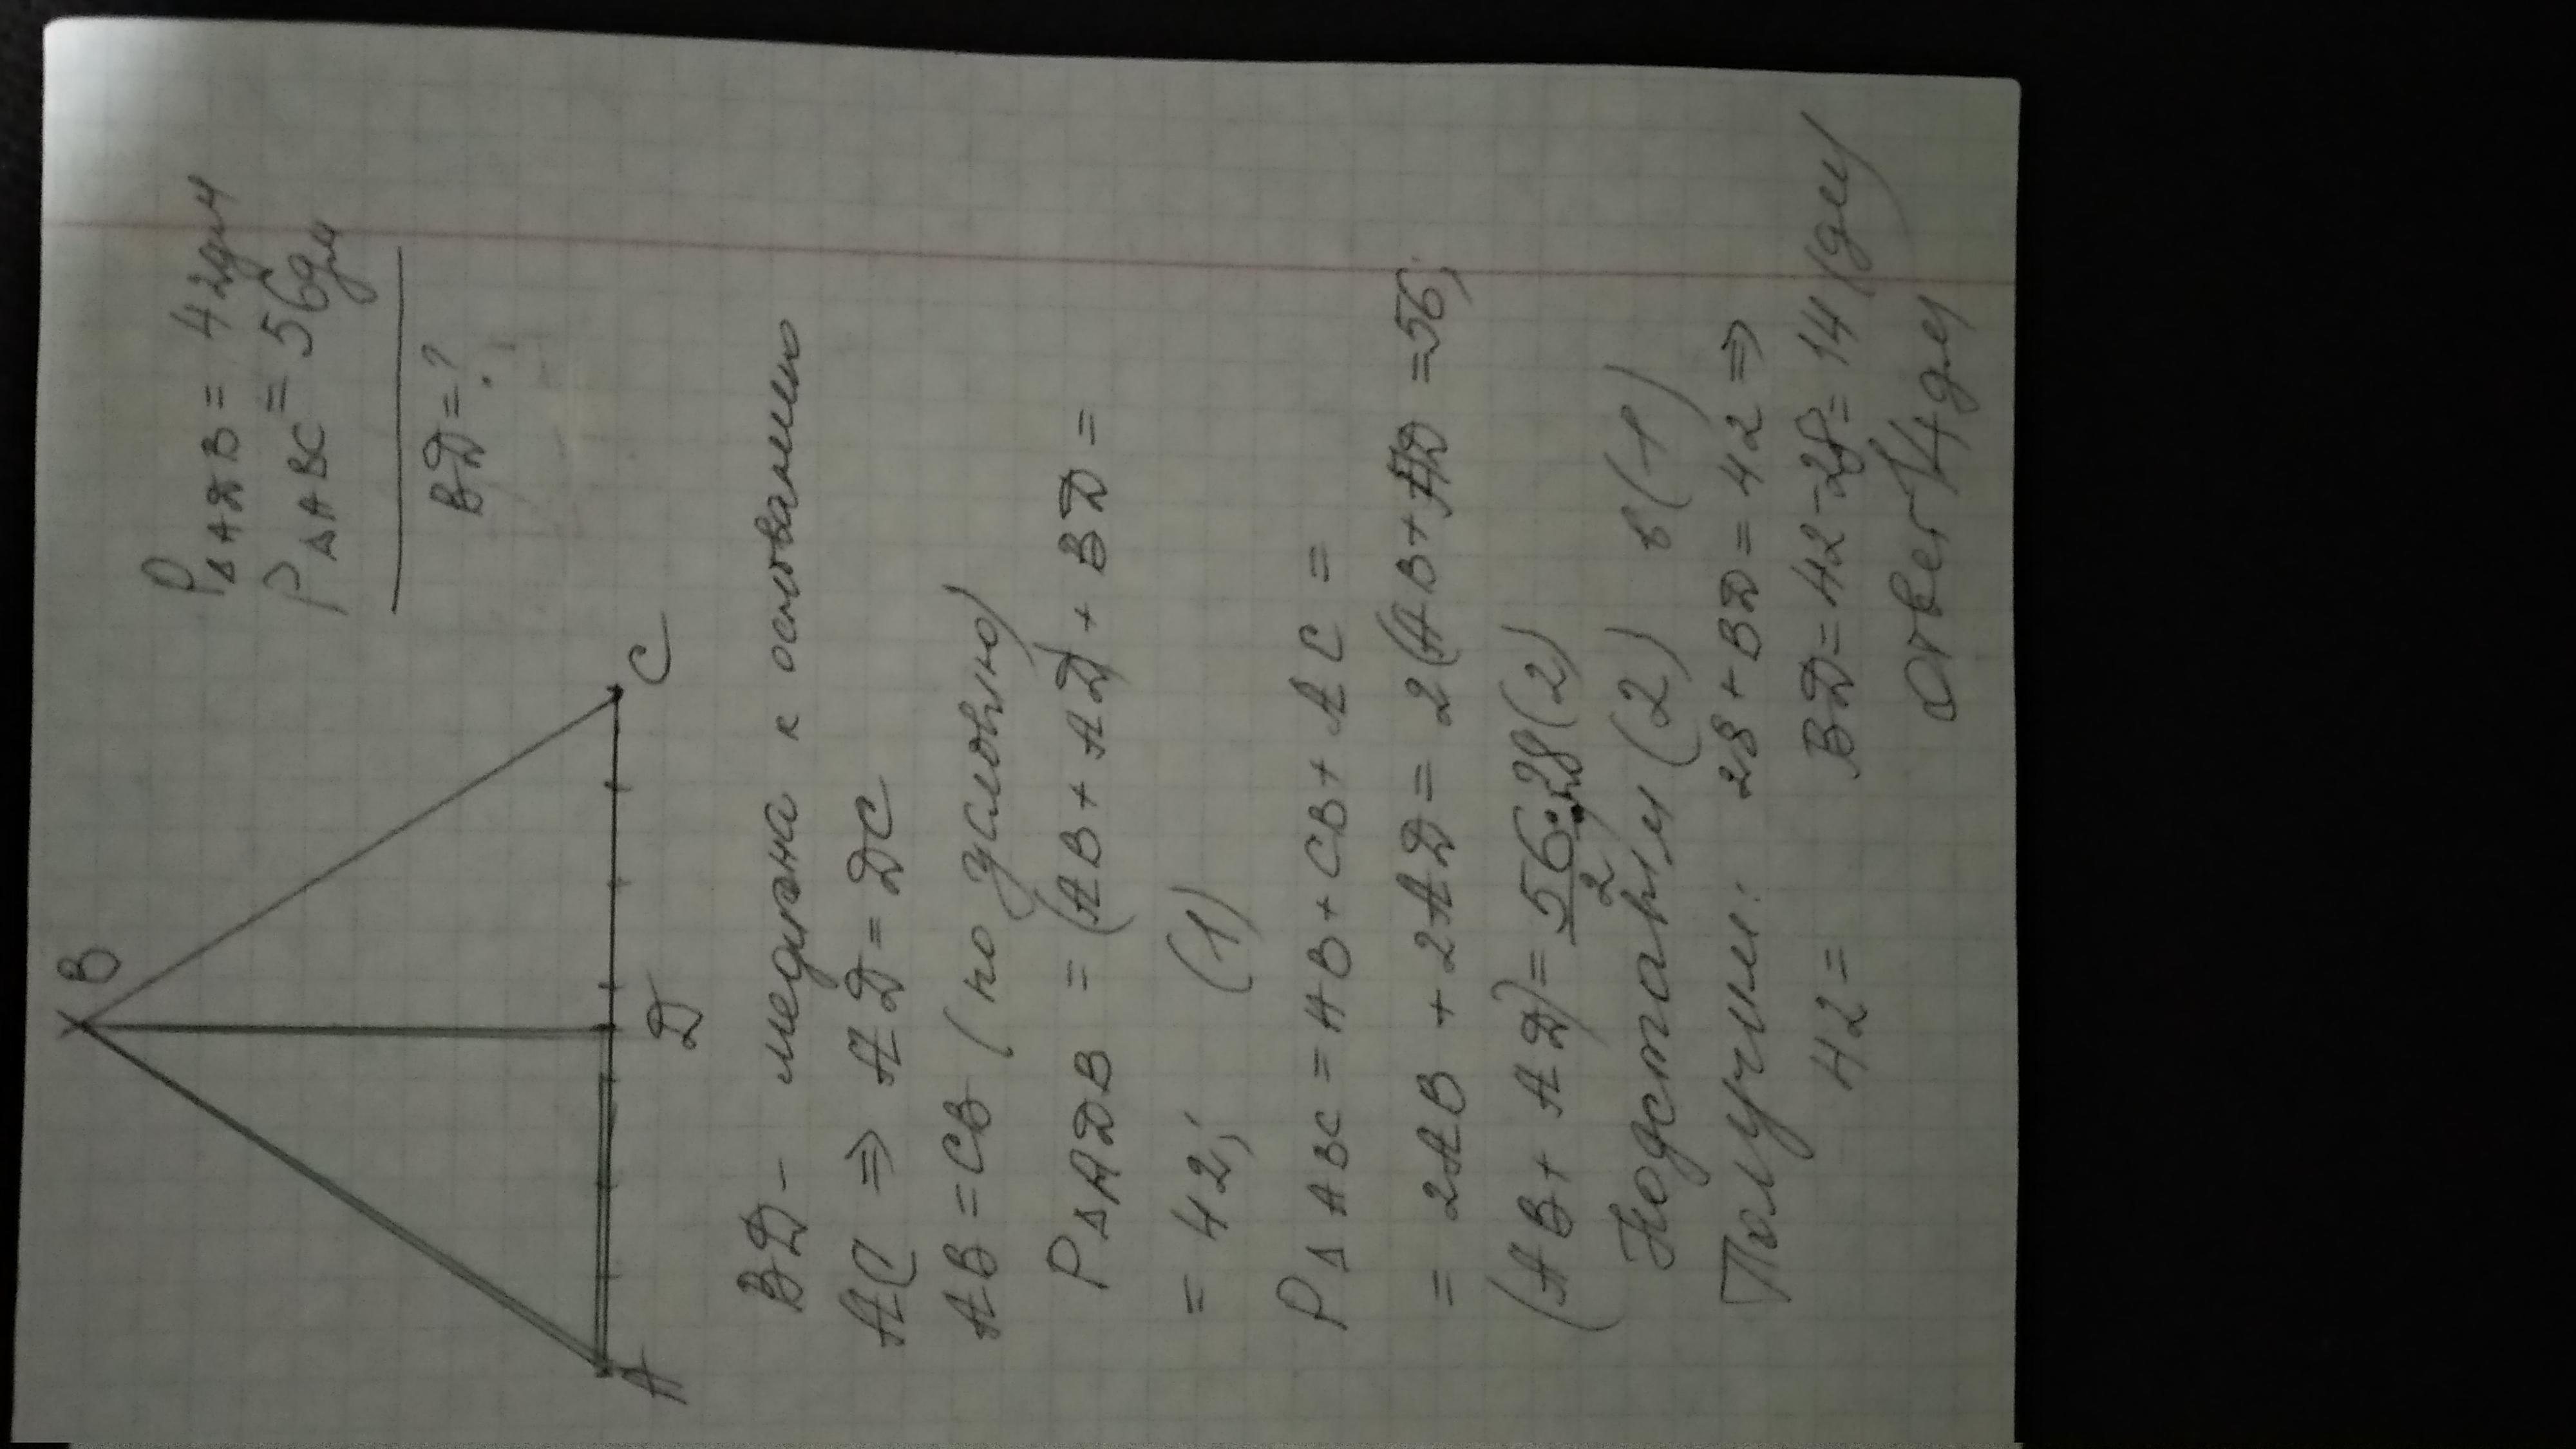 B
A
Д
C
P ΔAДB = 42дм
P ΔABC = 56дм
BД=?
BД - медиана к основанию
AC ⇒ AД = ДC
AB = CB (по условию)
P ΔAДB = (AB + AД) + BД =
= 42; (1)
P ΔABC = AB + CB + AC =
= 2AB + 2AД = 2(AB + AД) = 56;
(AB + AД) = 56/2 = 28 (2)
Подставим (2) в (1)
Получим: 28 + BД = 42 ⇒
42 = BД = 42 - 28 = 14 (дм)
Ответ 14 дм